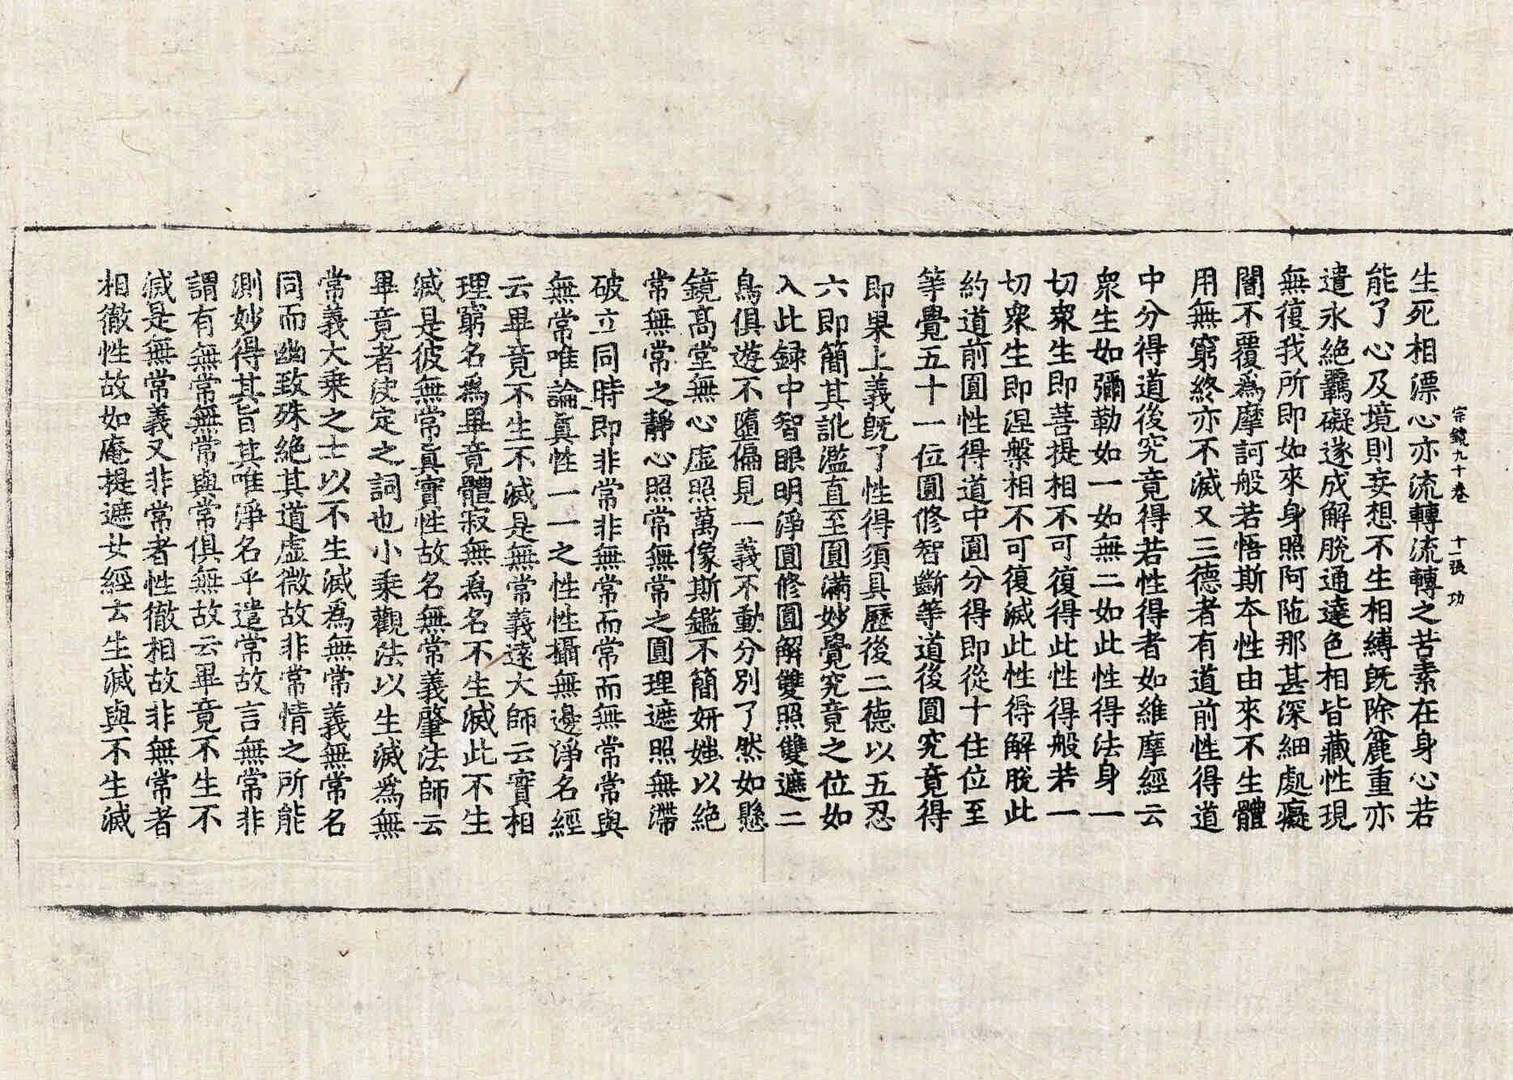 宗鏡九十卷 十一張 功
生死相漂心亦流轉流轉之苦素在身心若
能了心及境則妄想不生相縛旣除麁重亦
遣永絶羈礙遂成解脫通達色相皆藏性現
無復我所即如來身照阿陁那甚深細處癡
闇不覆爲摩訶般若悟斯本性由來不生體
用無窮終亦不滅又三德者有道前性得道
中分得道後究竟得若性得者如維摩經云
衆生如彌勒如一如無二如此性得法身一
切衆生即菩提相不可復得此性得般若一
切衆生即涅槃相不可復滅此性得解脫此
約道前圓性得道中圓分得即從十住位至
等覺五十一位圓修智斷等道後圓究竟得
即果上義旣了性得須具歷後二德以五忍
六即簡其訛濫直至圓滿妙覺究竟之位如
入此録中智眼明淨圓修圓解雙照雙遮二
鳥俱遊不墮偏見一義不動分別了然如懸
鏡高堂無心虛照萬像斯鑑不簡妍媸以絶
常無常之靜心照常無常之圓理遮照無滯
破立同時即非常非無常而常而無常常與
無常唯論眞性一一之性性攝無邊淨名經
云畢竟不生不滅是無常義遠大師云實相
理窮名爲畢竟體寂無爲名不生滅此不生
滅是彼無常眞實性故名無常義肇法師云
畢竟者決定之詞也小乘觀法以生滅爲無
常義大乘之士以不生滅爲無常義無常名
同而幽致殊絶其道虛微故非常情之所能
測妙得其旨其唯淨名乎遣常故言無常非
謂有無常無常與常俱無故云畢竟不生不
滅是無常義又非常者性徹相故非無常者
相徹性故如菴提遮女經云生滅與不生滅